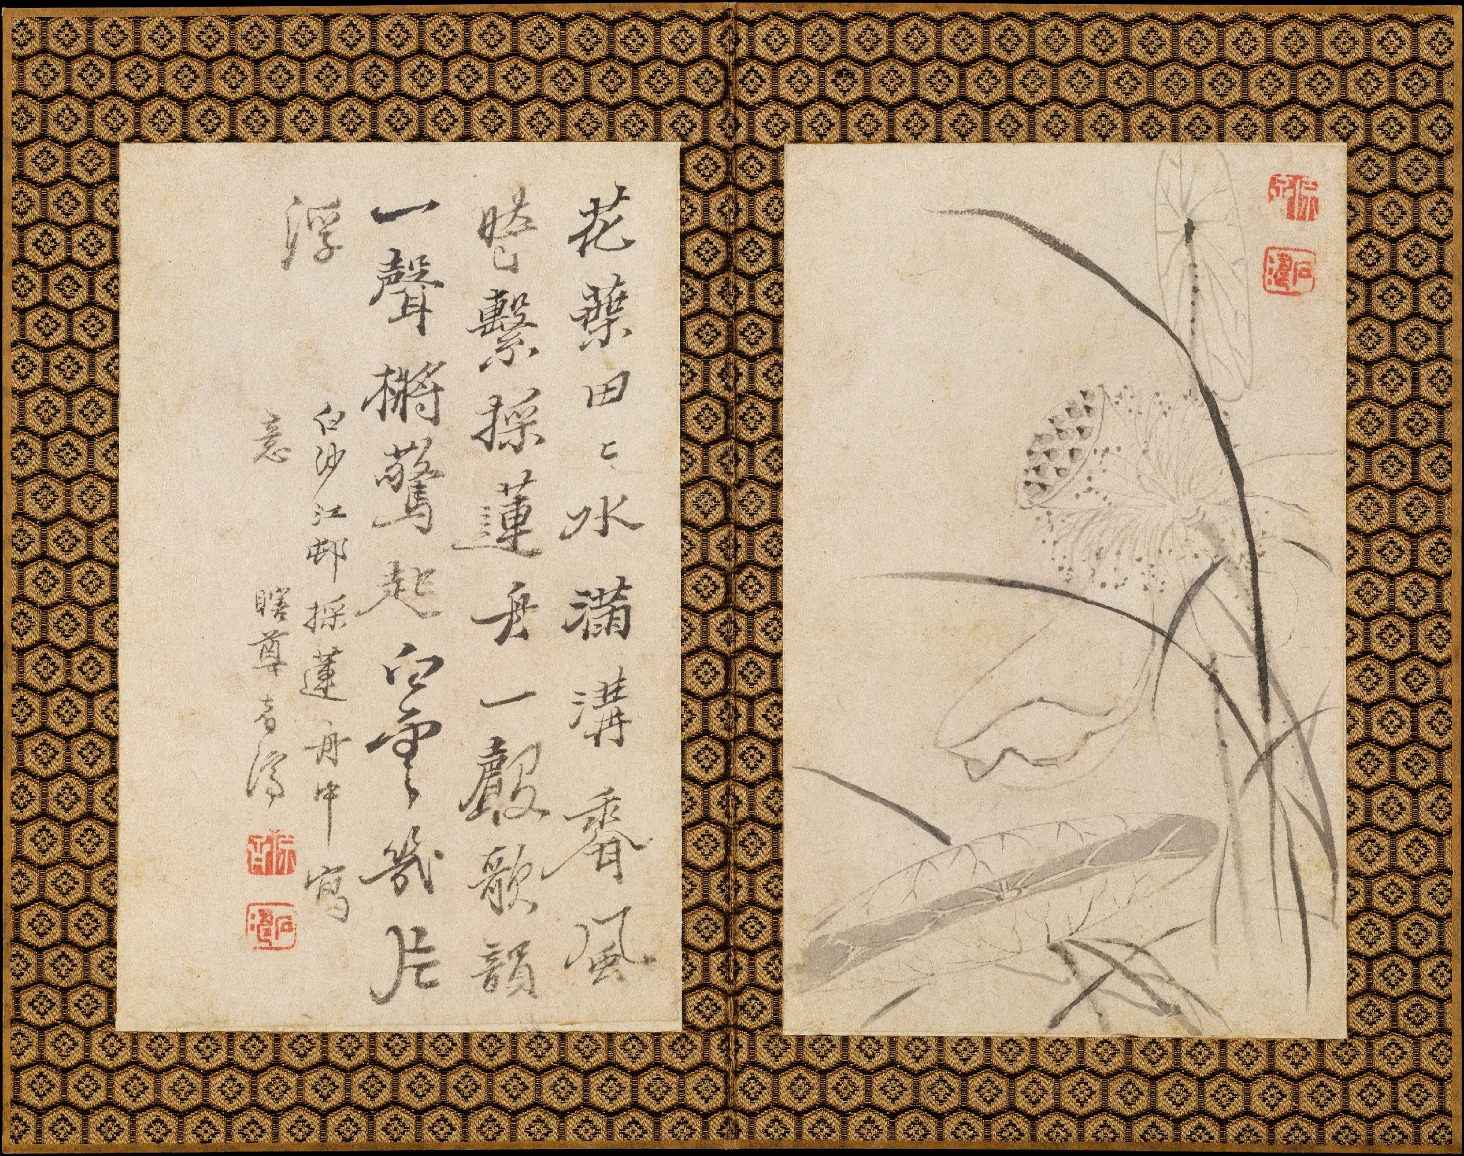 石濤
花葉田〻水滿溝香風
暫繫採蓮舟一聲歌韻
一聲槳驚起白雲幾片
浮
白沙江邨採蓮舟中寫
意 瞎尊者濟
石濤